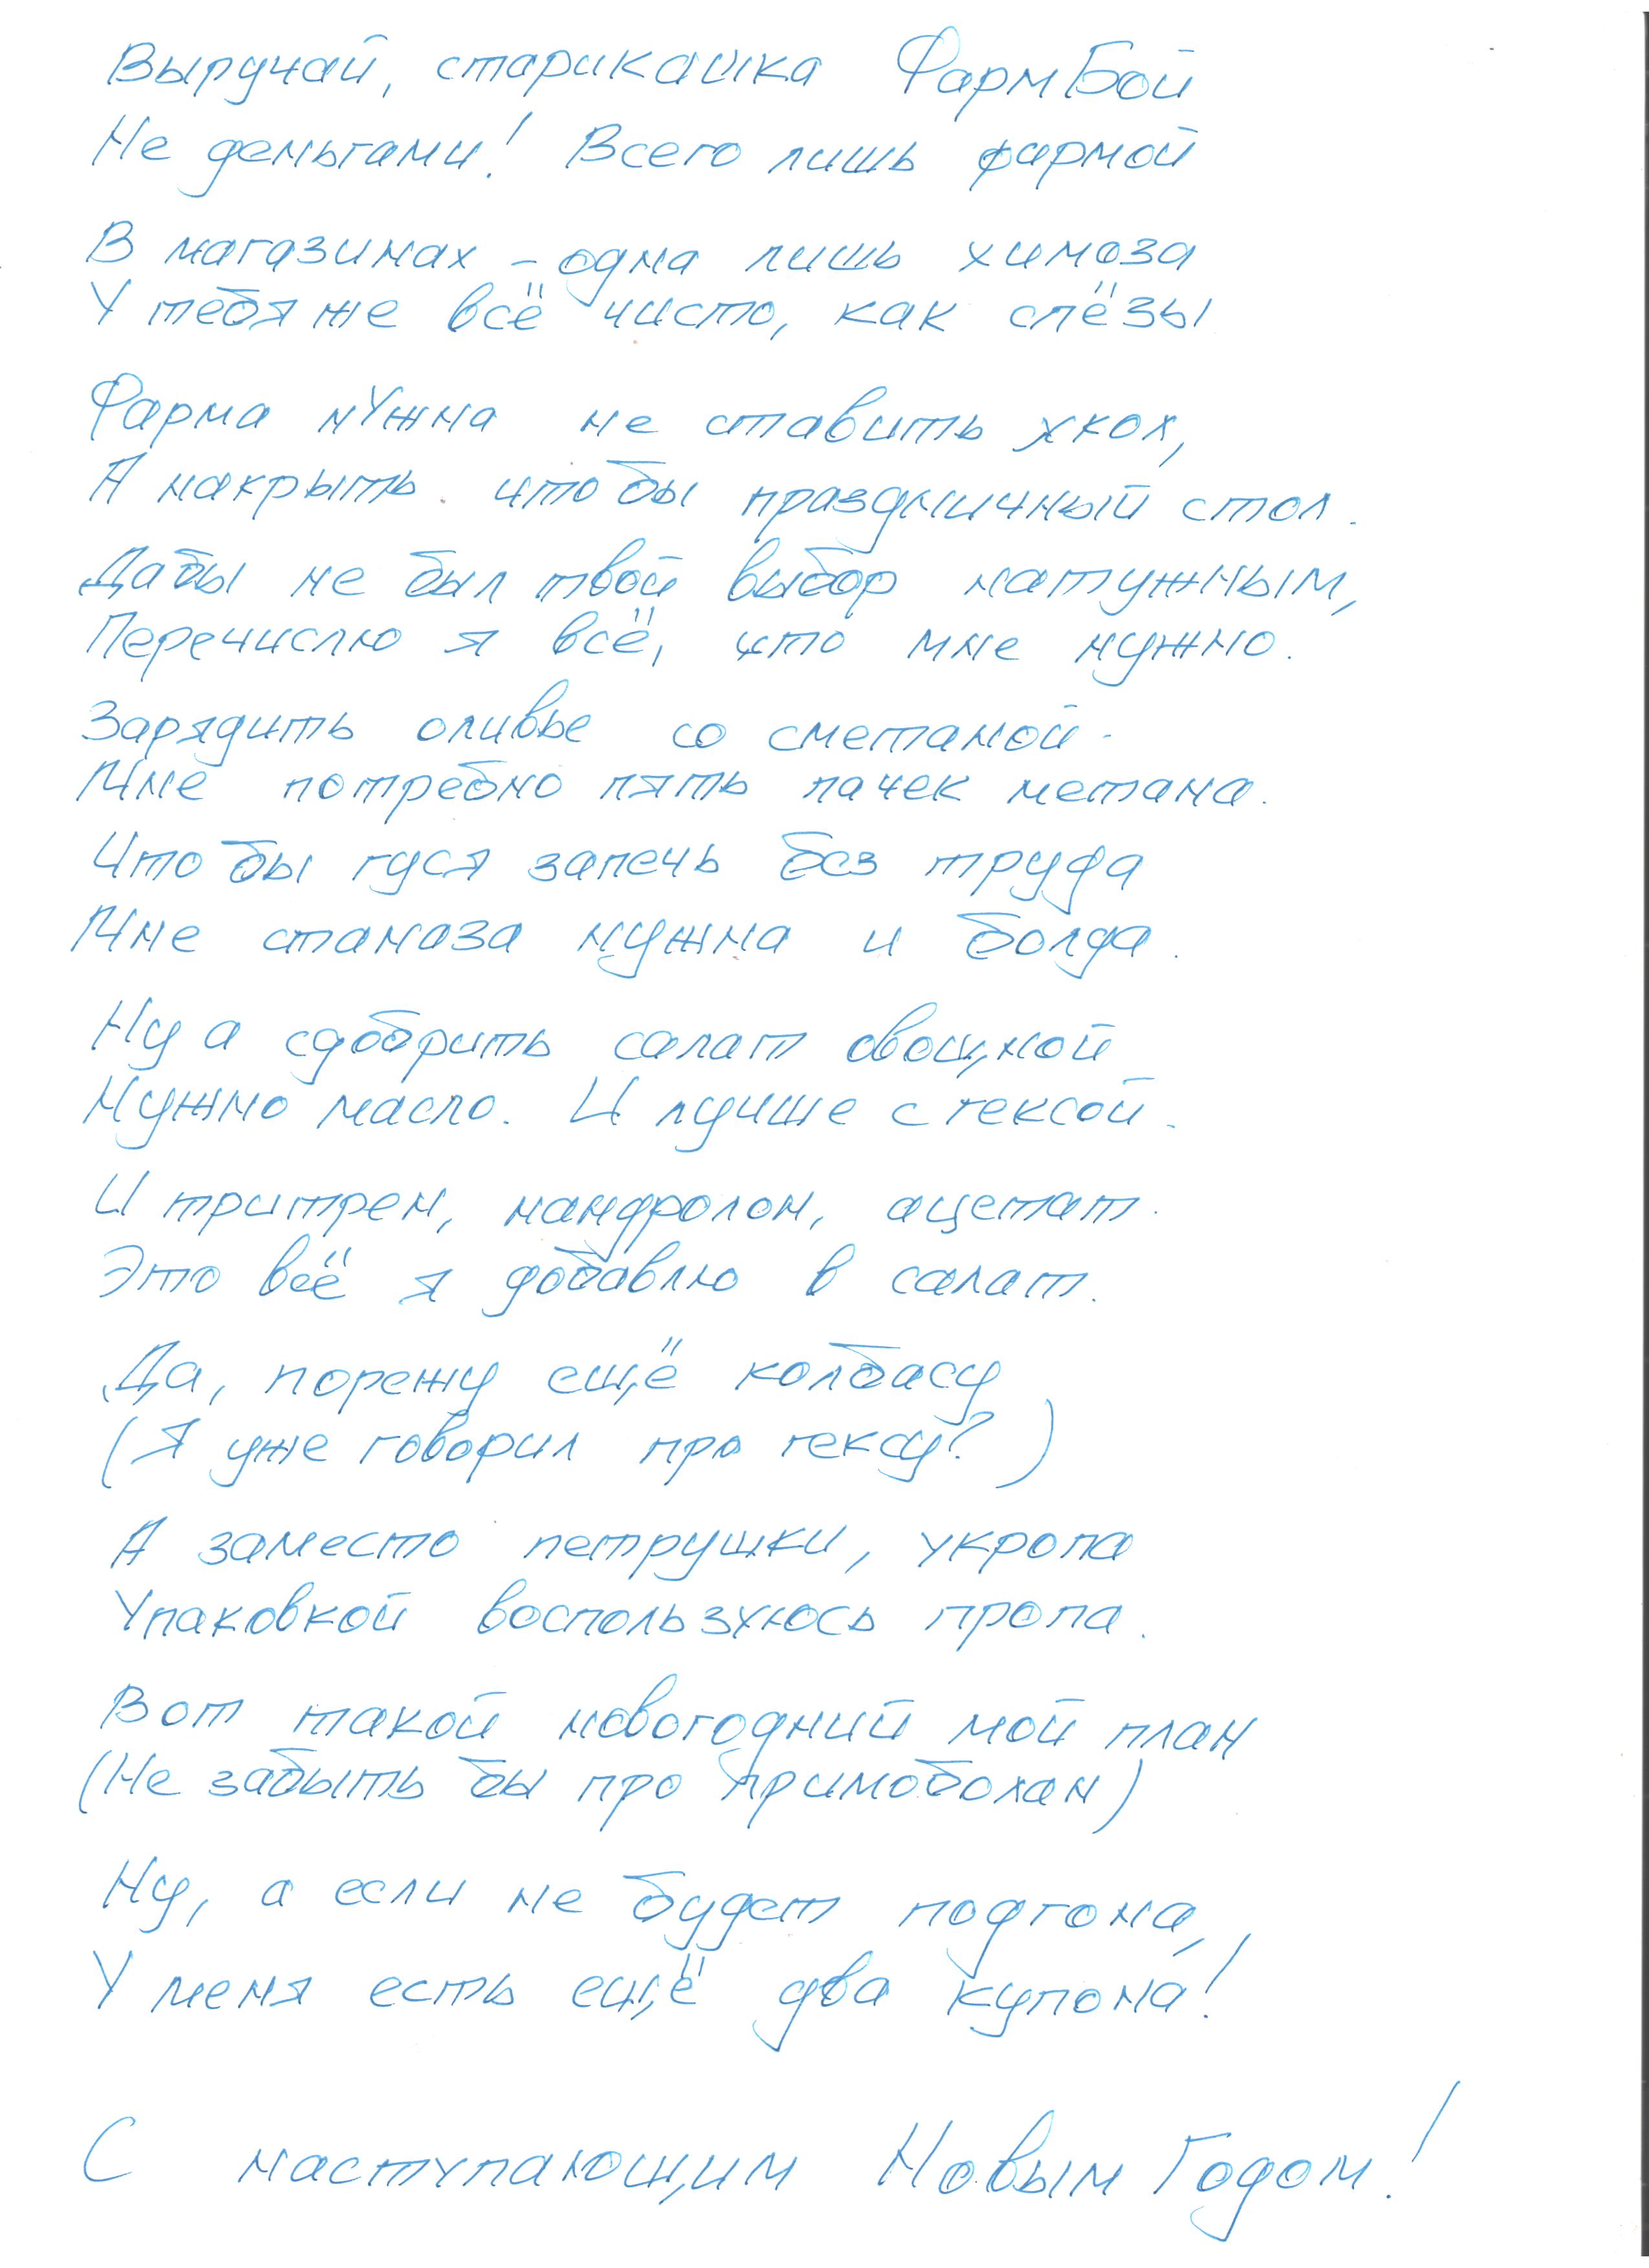 Выручай, старикашка ФармБой
Не деньгами! Всего лишь фармой
В магазинах - одна лишь химоза
У тебя же всё чисто, как слёзы
Фарма нужна не ставить укол,
А накрыть чтобы праздничный стол.
Дабы не был твой выбор натужным,
Перечислю я всё, что мне нужно.
Зарядить оливье со сметаной -
Мне потребно пять пачек метана.
Чтобы гуся запечь без труда
Мне станоза нужна и болда.
Ну а сдобрить салат овощной
Нужно масло. И лучше с гексой.
И тритрен, нандролон, ацетат.
Это всё я добавлю в салат.
Да, порежу ещё колбасу
(Я уже говорил про гексу?)
А заместо петрушки, укропа
Упаковкой воспользуюсь пропа.
Вот такой новогодний мой план
(Не забыть бы про примоболан)
Ну, а если не будет подгона,
У меня есть ещё два купона!
С наступающим Новым Годом!